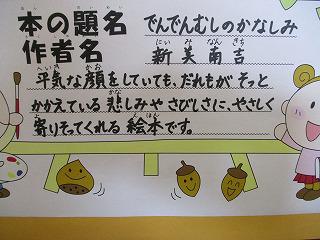 本の題名 でんでんむしのかなしみ
作者名 新美南吉
平気な顔をしていても、だれもがそっと
かかえている悲しみやさびしさに、やさしく
寄りそってくれる絵本です。